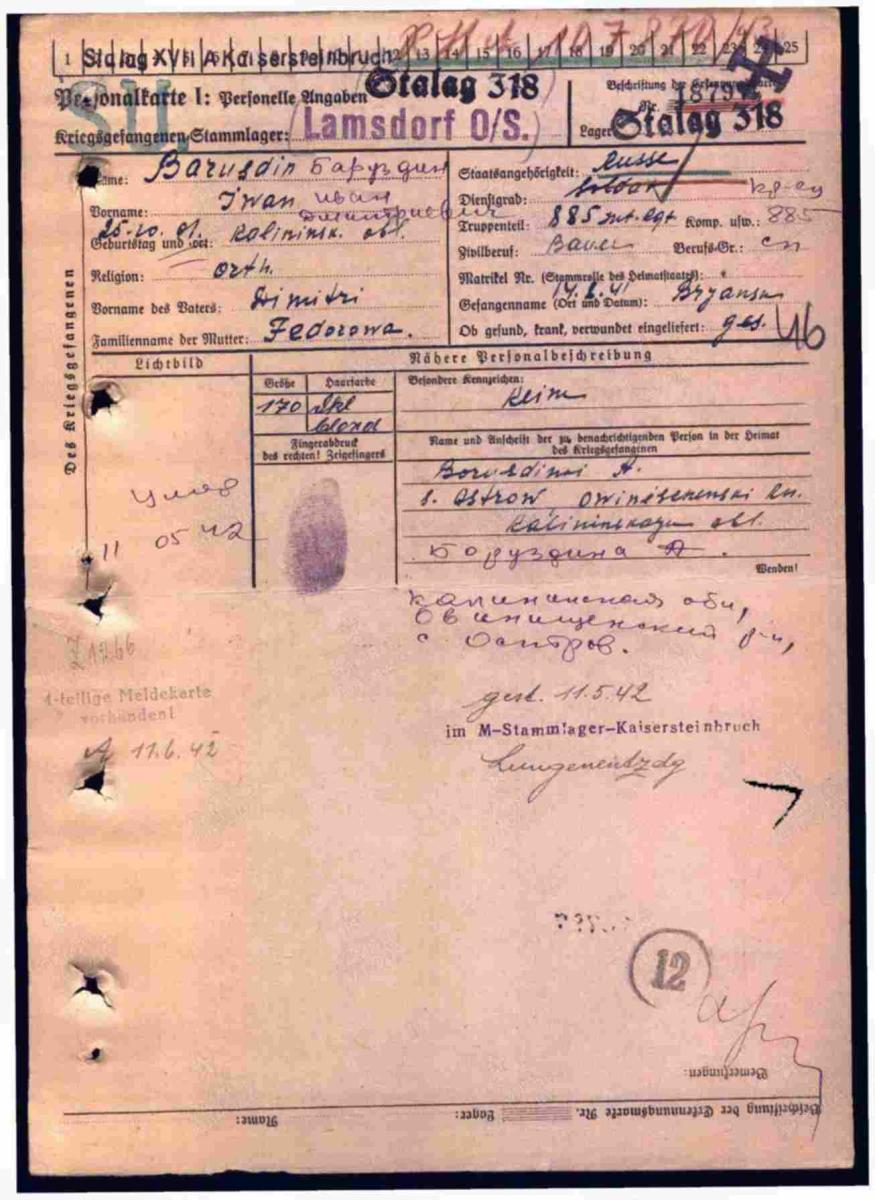 1 12 13 14 15 16 17 18 19 20 21 22 23 25
Stalag XVII A Kaisersteinbruch
107870/43
SU.
Personalkarte I: Personelle Angaben Stalag 318
Beschriftung der Erkennungsmarke
Kriegsgefangenen-Stammlager: (Lamsdorf O/S.)
Nr. 1879
Lager: Stalag 318
Des Kriegsgefangenen
Name: Barusdin Баруздин
Vorname: Iwan Иван
Дмитриевич
Geburtstag und -ort: 25.10.01. Kalininsk. obl.
Religion: orth.
Vorname des Vaters: Dimitri
Familienname der Mutter: Fedorowa.
Staatsangehörigkeit: Russe
Dienstgrad: Soldat кр-ец
Truppenteil: 885 Komp. usw.: 885
Zivilberuf: Bauer Berufs-Gr.:
Matrikel Nr. (Stammrolle des Heimatstaates):
Gefangenname (Ort und Datum): 41 Bryansk
Ob gesund, krank, verwundet eingeliefert: ges.
46
Lichtbild
Nähere Personalbeschreibung
Größe Haarfarbe
170 dkl
blond
Besondere Kennzeichen:
Keine
Fingerabdruck
des rechten! Zeigefingers
Name und Anschrift der zu benachrichtigenden Person in der Heimat
des Kriegsgefangenen
Borusdinoi A.
s. Ostrow
Kalininskaya obl.
Боруздина А.
Wenden!
умер
11 05 42
Калининская обл,
Овинищенский р-н,
с Остров.
4-teilige Meldekarte
vorhanden!
11.6.42
gest. 11.5.42
im M-Stammlager-Kaisersteinbruch
Lungenentzdg
12
Bemerkungen:
Beschriftung der Erkennungsmarke Nr. Lager: Name: